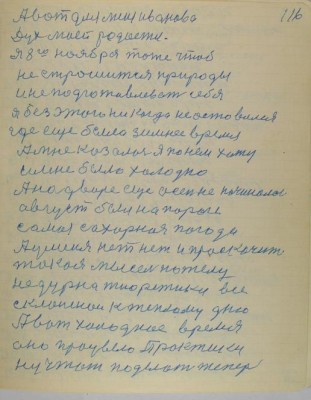 116
А вот для меня Иванова
Дух мает родаетс.
Я 8го ноября тоже чтоб
не строшится природы
и не подготавливать себя
я без этого никогда неоставился
где еще было зимнее время
А мне казалося я по нем хожу
и мне было холодно
А на дворе еще осень не починалос
август был на пороге
самая сахорная погода
А уменя нет нет и проскочить
такая мысел почему
недурна теоретики все
склонной к теплому дню
А вот холодное время
оно провело практики